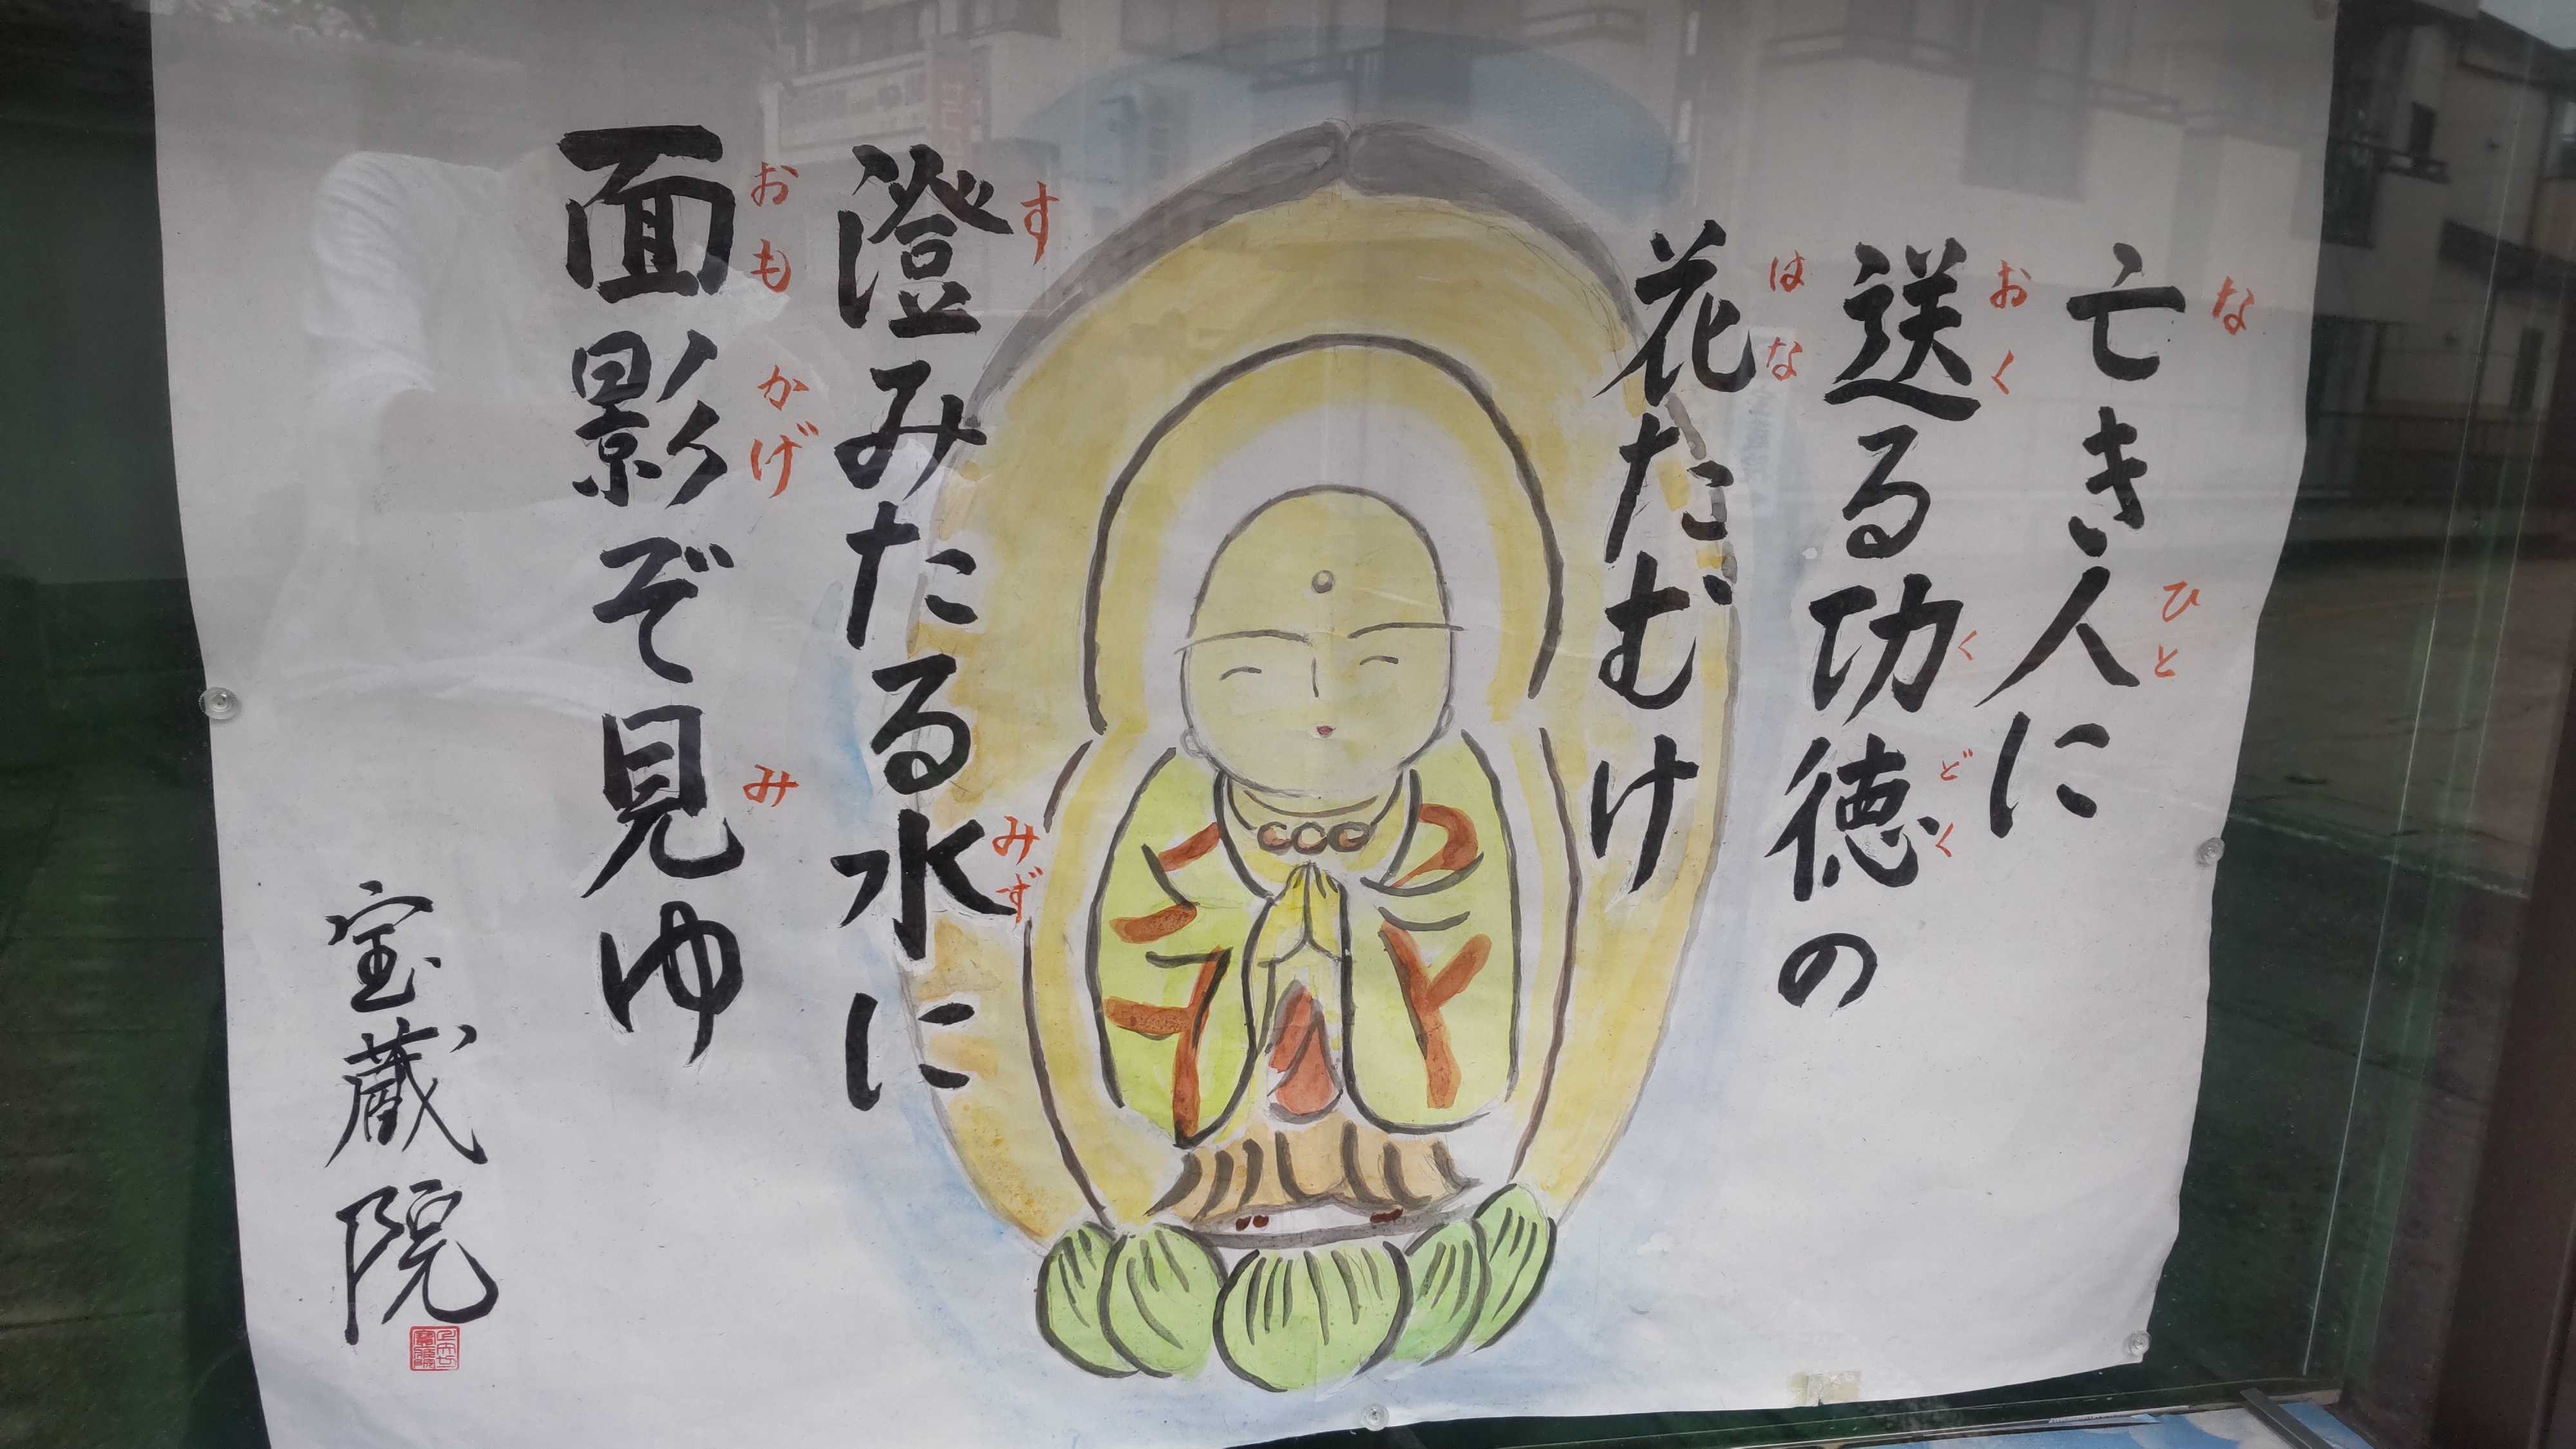 亡き人に
送る功徳の
花たむけ
澄みたる水に
面影ぞ見ゆ
宝蔵院